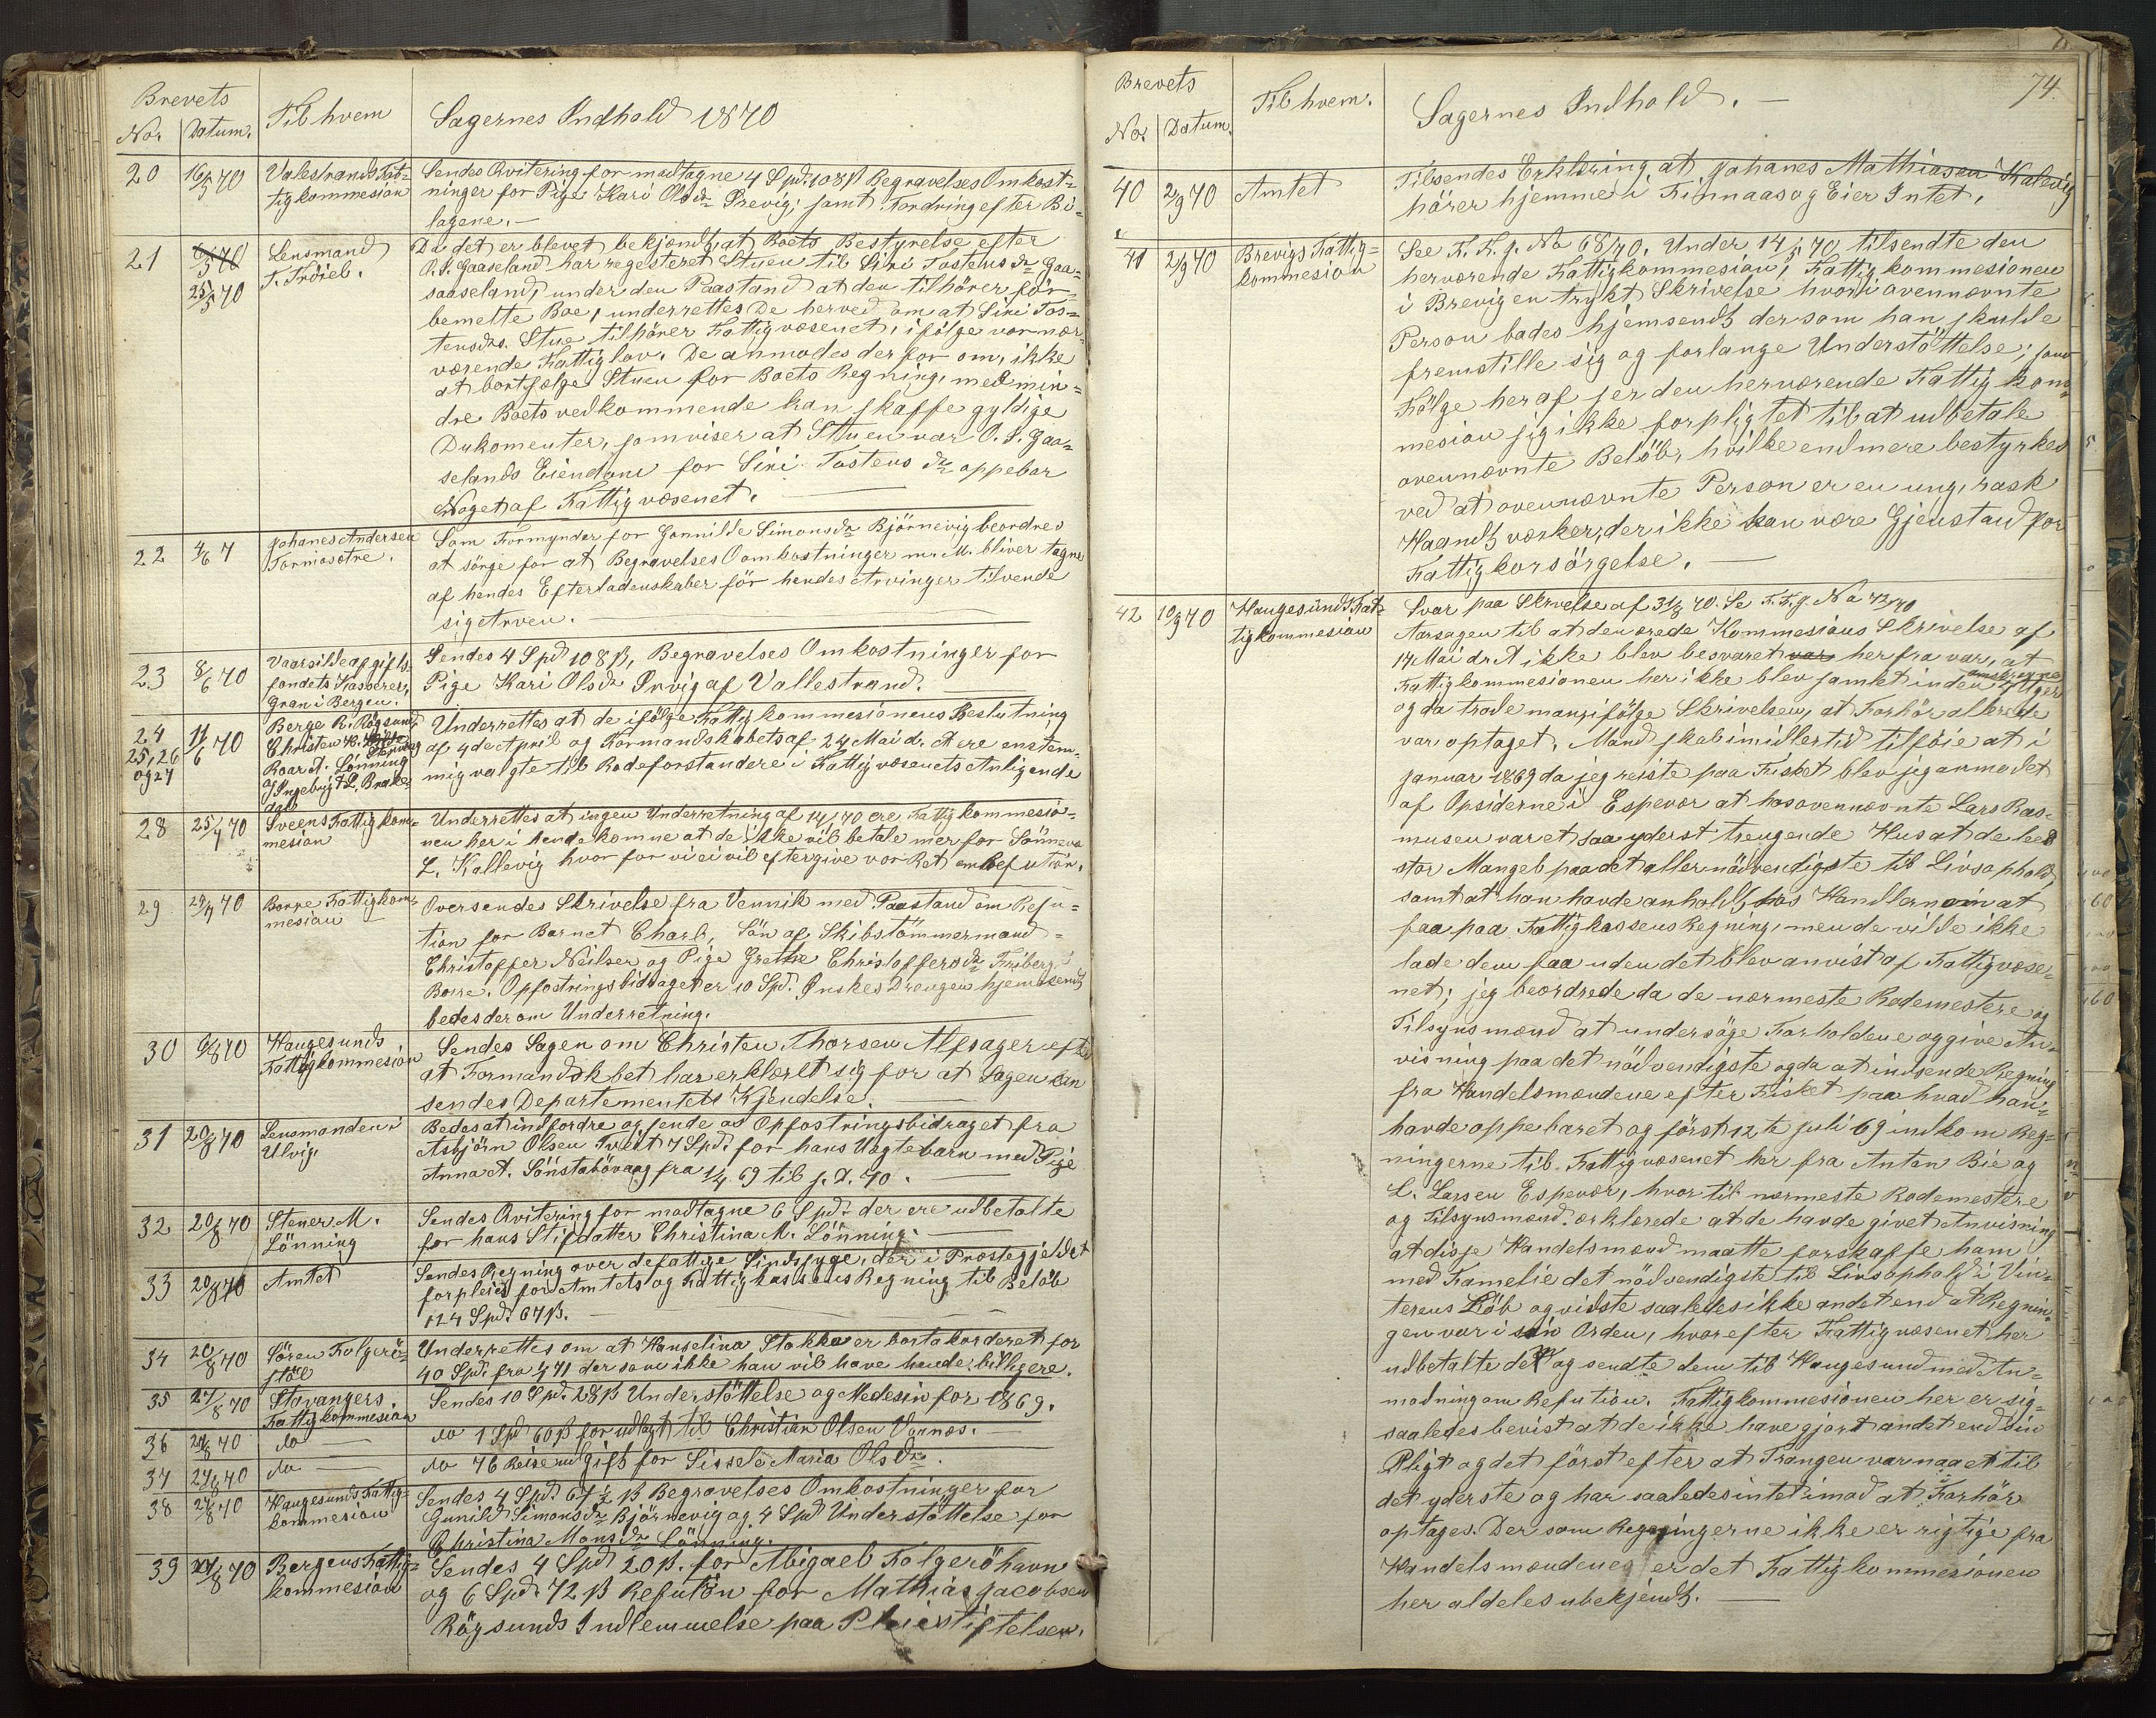 Brevets
No. Datum. Til hvem Sagernes Indhold 1870
20 16/5 70 Valestrands Fat- Sendes Qvitering for modtagne 4 Spd. 108 ß Begravelses Omkost=
tigkommesion ninger for Pige Kari Olsdr Previg; samt Fordring efter Bi=
lagene. —
21 6/5 70 Lensmand Da det er blevet bekjendt, at Boets Bestyrelse efter
25/5 70 T. Tröiel. O. S. Gaaseland har regesteret Stuen til Siri Tostensdr Gaa=
saaseland, under den Paastand at den tilhörer för=
bemelte Boe, underrettes De herved om at Siri Tos=
tensdrs. Stue tilhörer Fattigvæsenet, ifölge vor nær
værende Fattiglov. De anmodes derfor om, ikke
at bortsælge Stuen for Boets Regning, med min=
dre Boets vedkommende kan skaffe gyldige
Dukomenter, som viser at Stuen var O. S. Gaa=
selands Eiendom for Siri Tostens dr oppebar
Noget af Fattigvæsenet.
22 4/6 7 Johanes Andersen Som Formynder for Gonnilde Simonsdr Björnevig beordres
Tormosætre. at sörge for at Begravelses Oomkostninger m. M. bliver tagne
af hendes Efterladenskaber för hendes Arvinger tilvende
sig Arven.
23 8/6 70 Vaarsildeafgifts- Sendes 4 Spd 108 ß, Begravelses Omkostninger for
fondets Kasserer, Pige Kari Olsdr Prvig af Vallestrand.
Gran i Bergen.
24 11/6 70 Berge R. Rögsund Underrettes at de ifölge Fattigkommesionens Beslutning
25, 26 Christen H. af 4de April og Formandskabets af 24 Mai d. A ere enstem-
og 27 Roar A. Lönning mig valgte til Rodeforstandere i Fattigvæsenets Anligende
og Ingebrigt L. Brække-
dal
28 25/7 70 Sveens Fattigkom= Underrettes at ingen Underretning af 14/ 70 ere Fattigkommesio=
mesion nen her i hende komne at de ikke vil betale mer for Sönneva
L. Kallevig hvor for vi ei vil eftergive vor Ret om Refution.
29 29/7 70 Borre Fattigkom- Oversendes Skrivelse fra Vennik med Paastand om Refu=
mesion tion for Barnet Charl, Sön af Skibstömmermand
Christoffer Neilsen og Pige Grethe Christoffersdr Friberg i
Borre. Opfostringsbidraget er 10 Spd. Önskes Drengen hjemsendt
bedes derom Underretning.
30 6/8 70 Haugesunds Sendes Sagen om Christen Thorsen Alfsager efter
Fattigkommesion at Formandskbet har erklært sig for at Sagen kan
sendes Departementets Kjendelse.
31 20/8 70 Lensmanden i Bedes at indfordre og sende os Opfostringsbidraget fra
Ulvig. Asbjörn Olsen Tveit 7 Spd. for hans Uægtebarn med Pige
Anna A. Sönstabövaag fra 1/4 69 til s. D. 70.
32 20/8 70 Stener M. Sendes Qvitering for modtagne 6 Spd. der ere udbetalte
Lönning for hans Stifdatter Christina M. Lönning.
33 20/8 70 Amtet Sendes Regning over defattige Sindssyge, der i Præstegjeldet
forpleies for Amtets og Fattigkassens Regning til Belöb
124 Spd. 67 ß.
34 20/8 70 Sören Folgerö= Underrettes om at Hanselina Stokka er bortakorderet for
stöl 40 Spd. fra 1/4 71 der som ikke han vil have hende billigere.
35 27/8 70 Stavangers Sendes 10 Spd. 28 ß Understöttelse og Medesin for 1869.
Fattigkommesion
36 27/8 70 do — do 1 Spd 60 ß for udlagt til Christian Olsen Vornes. —
37 27/8 70 do — do 76 Reiseudgift for Sissele Maria Olsdr.
38 27/8 70 Haugesunds Fattig= Sendes 4 Spd. 67 1/2 ß Begravelses Omkostninger for
kommesion Gunild Simonsdr Björnevig og 4 Spd Understöttelse for
Christina Monsdr Lönning.
39 27/8 70 Bergens Fattig= Sendes 4 Spd 20 ß. for Abigael Folgeröhavn
kommesion og 6 Spd. 72 ß Refution for Mathias Jacobsen
Rögsunds Indlemmelse paa Pleiestiftelsen.
74.
Brevets
No. Datum. Til hvem. Sagernes Indhold. —
40 2/9 70 Amtet Tilsendes Erklæring at Johanes Mathiasen Kalevig
hörer hjemme i Finnaas og Eier Intet.
41 2/9 70 Brevigs Fattig= See F. K. J. No 68/70. Under 14/5 70 tilsendte den
kommesion herværende Fattigkommesion, Fattigkommesionen
i Brevig en trykt Skrivelse hvori ovennævnte
Person bades hjemsendt dersom han skulde
fremstille sig og forlange Understöttelse; som
Fölge heraf ser den herværende Fattigkom=
mesion sig ikke forpligtet til at udbetale
ovennævnte Belöb, hvilke endmere bestyrkes
ved at ovennævnte Person er en ung, rask
Haandtværker, der ikke kan være Gjenstand for
Fattigkorsörgelse.
42 10/9 70 Haugesunds Fat= Svar paa Skrvelse af 31/8 70. Se F. K. J. No 72/70
tigkommesion Aarsagen til at den ærede Kommesions Skrivelse af
14 Mai d. A ikke blev besvaret var her fra var, at
Fattigkommesionen her ikke blev samlet inden
og da trode man, ifölge Skrivelsen, at Forhör allerede
var optaget. Mand skal imidlertid tilföie at i
Januar 1869 da jeg reiste paa Fisket blev jeg anmodet
af Opsiderne i Espevær at hos ovennævnte Lars Ras=
musen var et saa yderst trengende Hus at de leed
stor Mangel paa det allernödvendigste til Livsophold,
samt at han havde anholdt hos Handlerne om at
faa paa Fattigkassens Regning, men de vilde ikke
lade dem faa uden det blev anvist af Fattigvæse=
net; jeg beordrede da de nærmeste Rodemestere og
Tilsynsmænd at undersöge Forholdene og give An=
visning paa det nödvendigste og da at indsende Regning
fra Handelsmændene efter Fisket paa hvad han
havde oppebaret og först 12te Juli 69 indkom Reg=
ningerne til Fattigvæsenet her fra Anton Bie og
L. Larsen Espevær, hvor til nærmeste Rodemestere
og Tilsynsmænd. erklærede at de havde givet Anvisning
at disse Handelsmænd maatte forskaffe ham
med Famelie det nödvendigste til Livsophold i Vin=
terens Löb og vidste saaledes ikke andet end at Regnin=
gen var i sin Orden, hvor efter Fattigvæsenet her
udbetalte det og sendte dem til Haugesund med An=
modning om Refution. Fattigkommesionen her er sig=
saaledes bevist at de ikke have gjort andet end sin
Pligt og det först efter at Trangen var naaet til
det yderste og har saaledes intet imod at Forhör
optages. Der som Regningerne ikke er rigtige fra
Handelsmændenes er det Fattigkommesionen
her aldeles ubekjendt. —